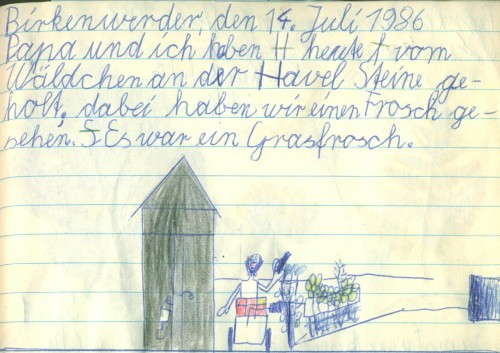 Birkenwerder, den 14. Juli 1986
Papa und ich haben heute vom
Wäldchen an der Havel Steine ge-
holt, dabei haben wir einen Frosch ge-
sehen. Es war ein Grasfrosch.